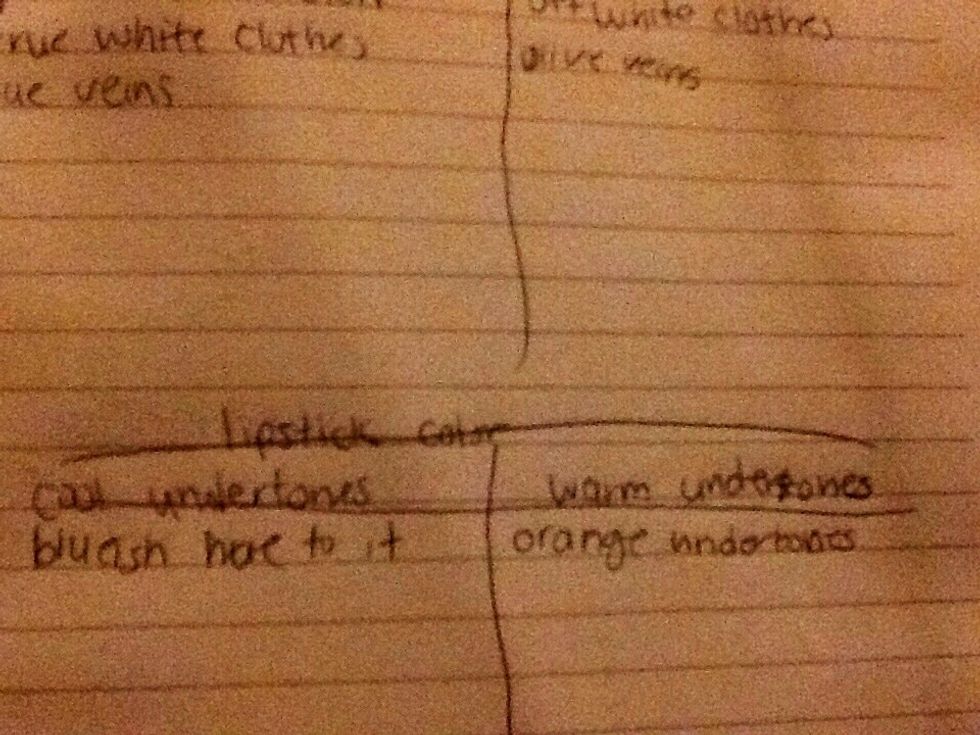 rue white clothes
ue veins
off white clothes
olive veins
lipstick color
cool undertones
warm undertones
bluish hue to it
orange undertones